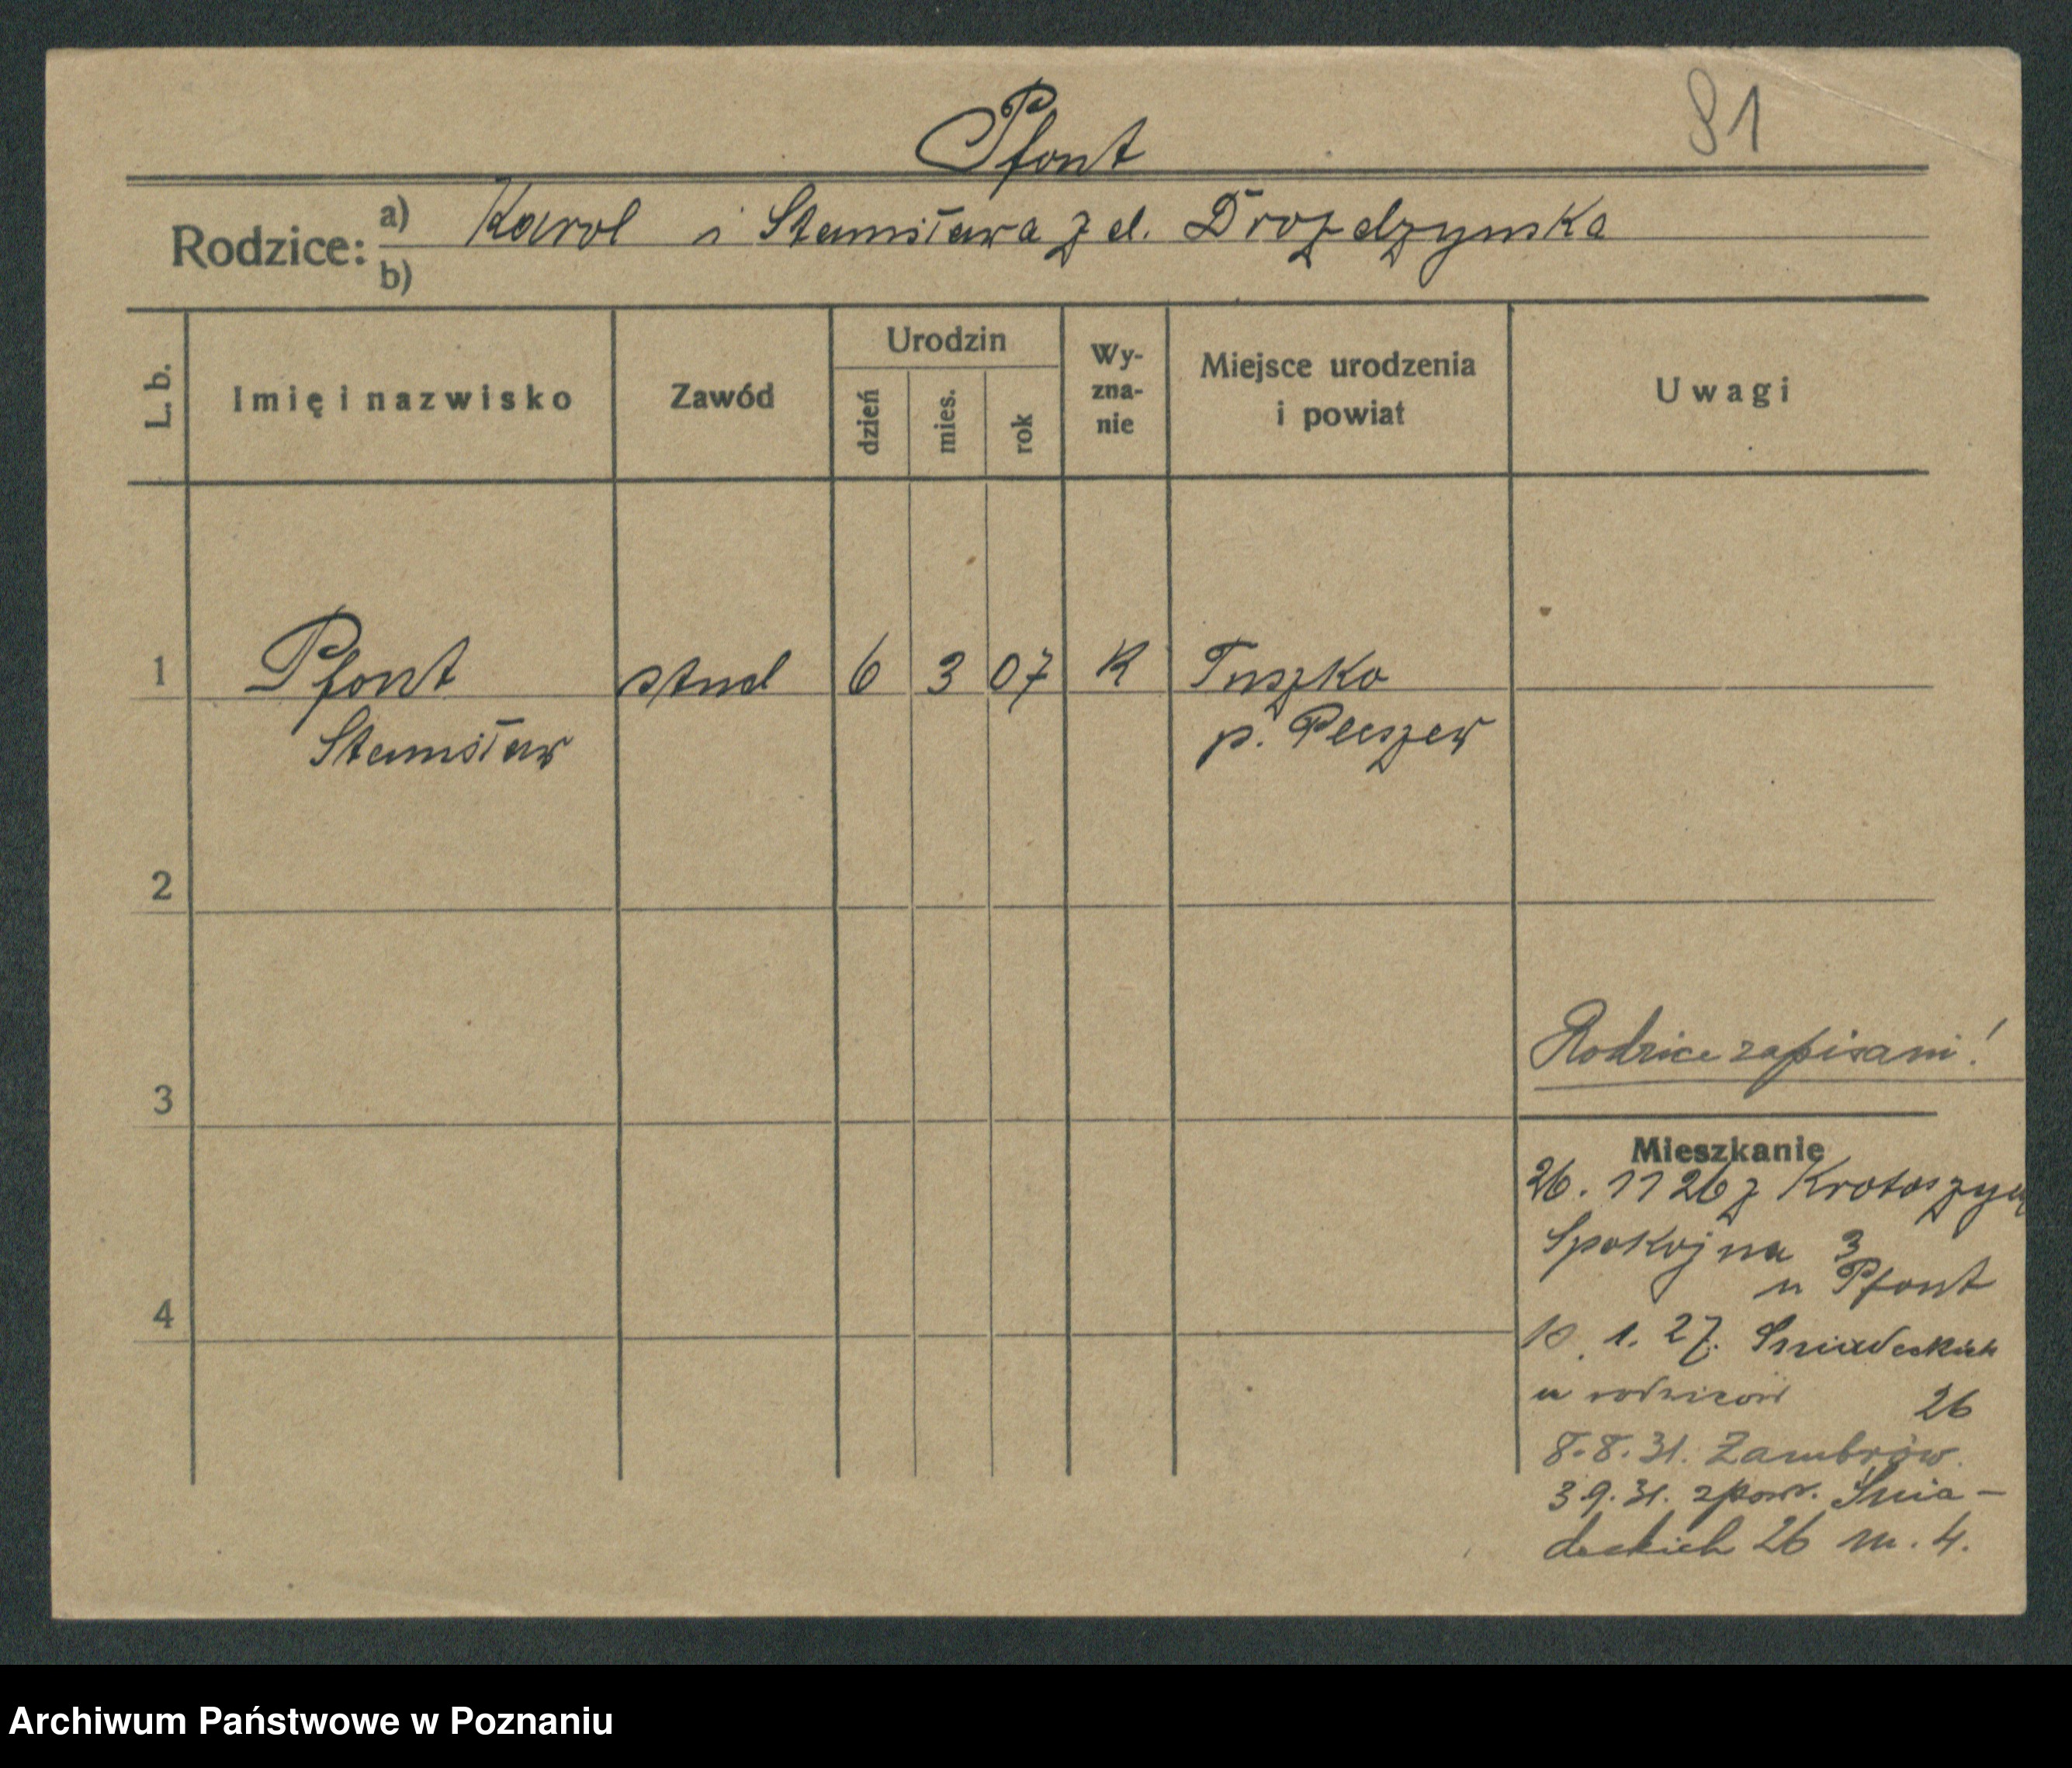 Pfont
81
Rodzice: a) Karol i Stanisława z d. Drozdzynska
b)
L. b.
Imię i nazwisko
Zawód
Urodzin
dzień
mies.
rok
Wy-
zna-
nie
Miejsce urodzenia
i powiat
Uwagi
1 Pfont stud 6 3 07 K Tuszko
Stanisław p. Pleszew
2
3
4
Rodzice zapisani!
Mieszkanie
26. 11 26 z Krotoszyn
Spokojna 3
u Pfont
10. 1. 27. Sniadeckich
u rodziców 26
8.8.31. Zambrów.
3.9.31. zpow. Śnia-
deckich 26 m. 4.
Archiwum Państwowe w Poznaniu